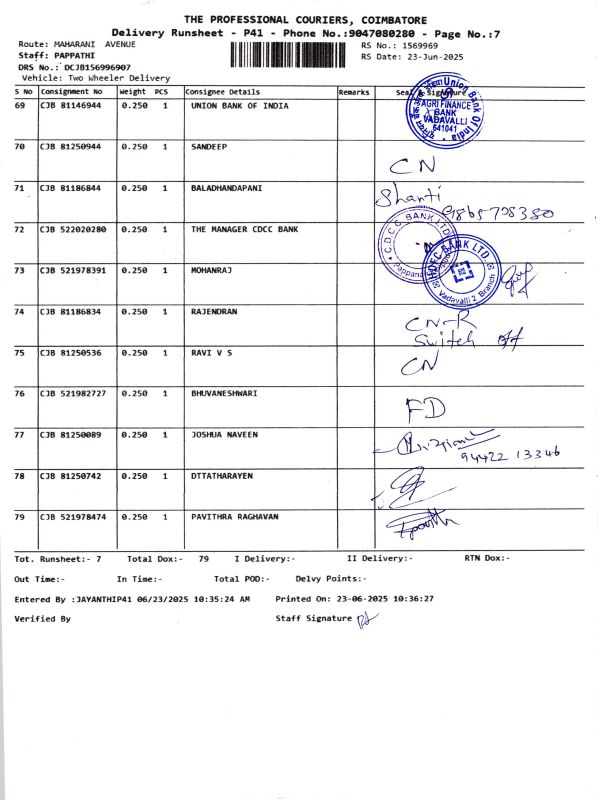 THE PROFESSIONAL COURIERS, COIMBATORE
Delivery Runsheet - P41 - Phone No.:9047080280 - Page No.:7
Route: MAHARANI AVENUE RS No.: 1569969
Staff: PAPPATHI RS Date: 23-Jun-2025
DRS No.: DCJB156996907
Vehicle: Two Wheeler Delivery
S No Consignment No Weight PCS Consignee Details Remarks Seal & Signature
69 CJB 81146944 0.250 1 UNION BANK OF INDIA
Union Bank Of India
AGRI FINANCE
BANK
VADAVALLI
641041
70 CJB 81250944 0.250 1 SANDEEP CN
71 CJB 81186844 0.250 1 BALADHANDAPANI Shanti
9865708380
72 CJB 522020280 0.250 1 THE MANAGER CDCC BANK
C.D.C.C. BANK LTD.
73 CJB 521978391 0.250 1 MOHANRAJ
HDFC BANK LTD.
Vadavalli 2 Branch
74 CJB 81186834 0.250 1 RAJENDRAN CN-R
Switch off
75 CJB 81250536 0.250 1 RAVI V S CN
76 CJB 521982727 0.250 1 BHUVANESHWARI FD
77 CJB 81250089 0.250 1 JOSHUA NAVEEN
94422 13346
78 CJB 81250742 0.250 1 DTTATHARAYEN
79 CJB 521978474 0.250 1 PAVITHRA RAGHAVAN
Tot. Runsheet:- 7 Total Dox:- 79 I Delivery:- II Delivery:- RTN Dox:-
Out Time:- In Time:- Total POD:- Delvy Points:-
Entered By :JAYANTHIP41 06/23/2025 10:35:24 AM Printed On: 23-06-2025 10:36:27
Verified By Staff Signature